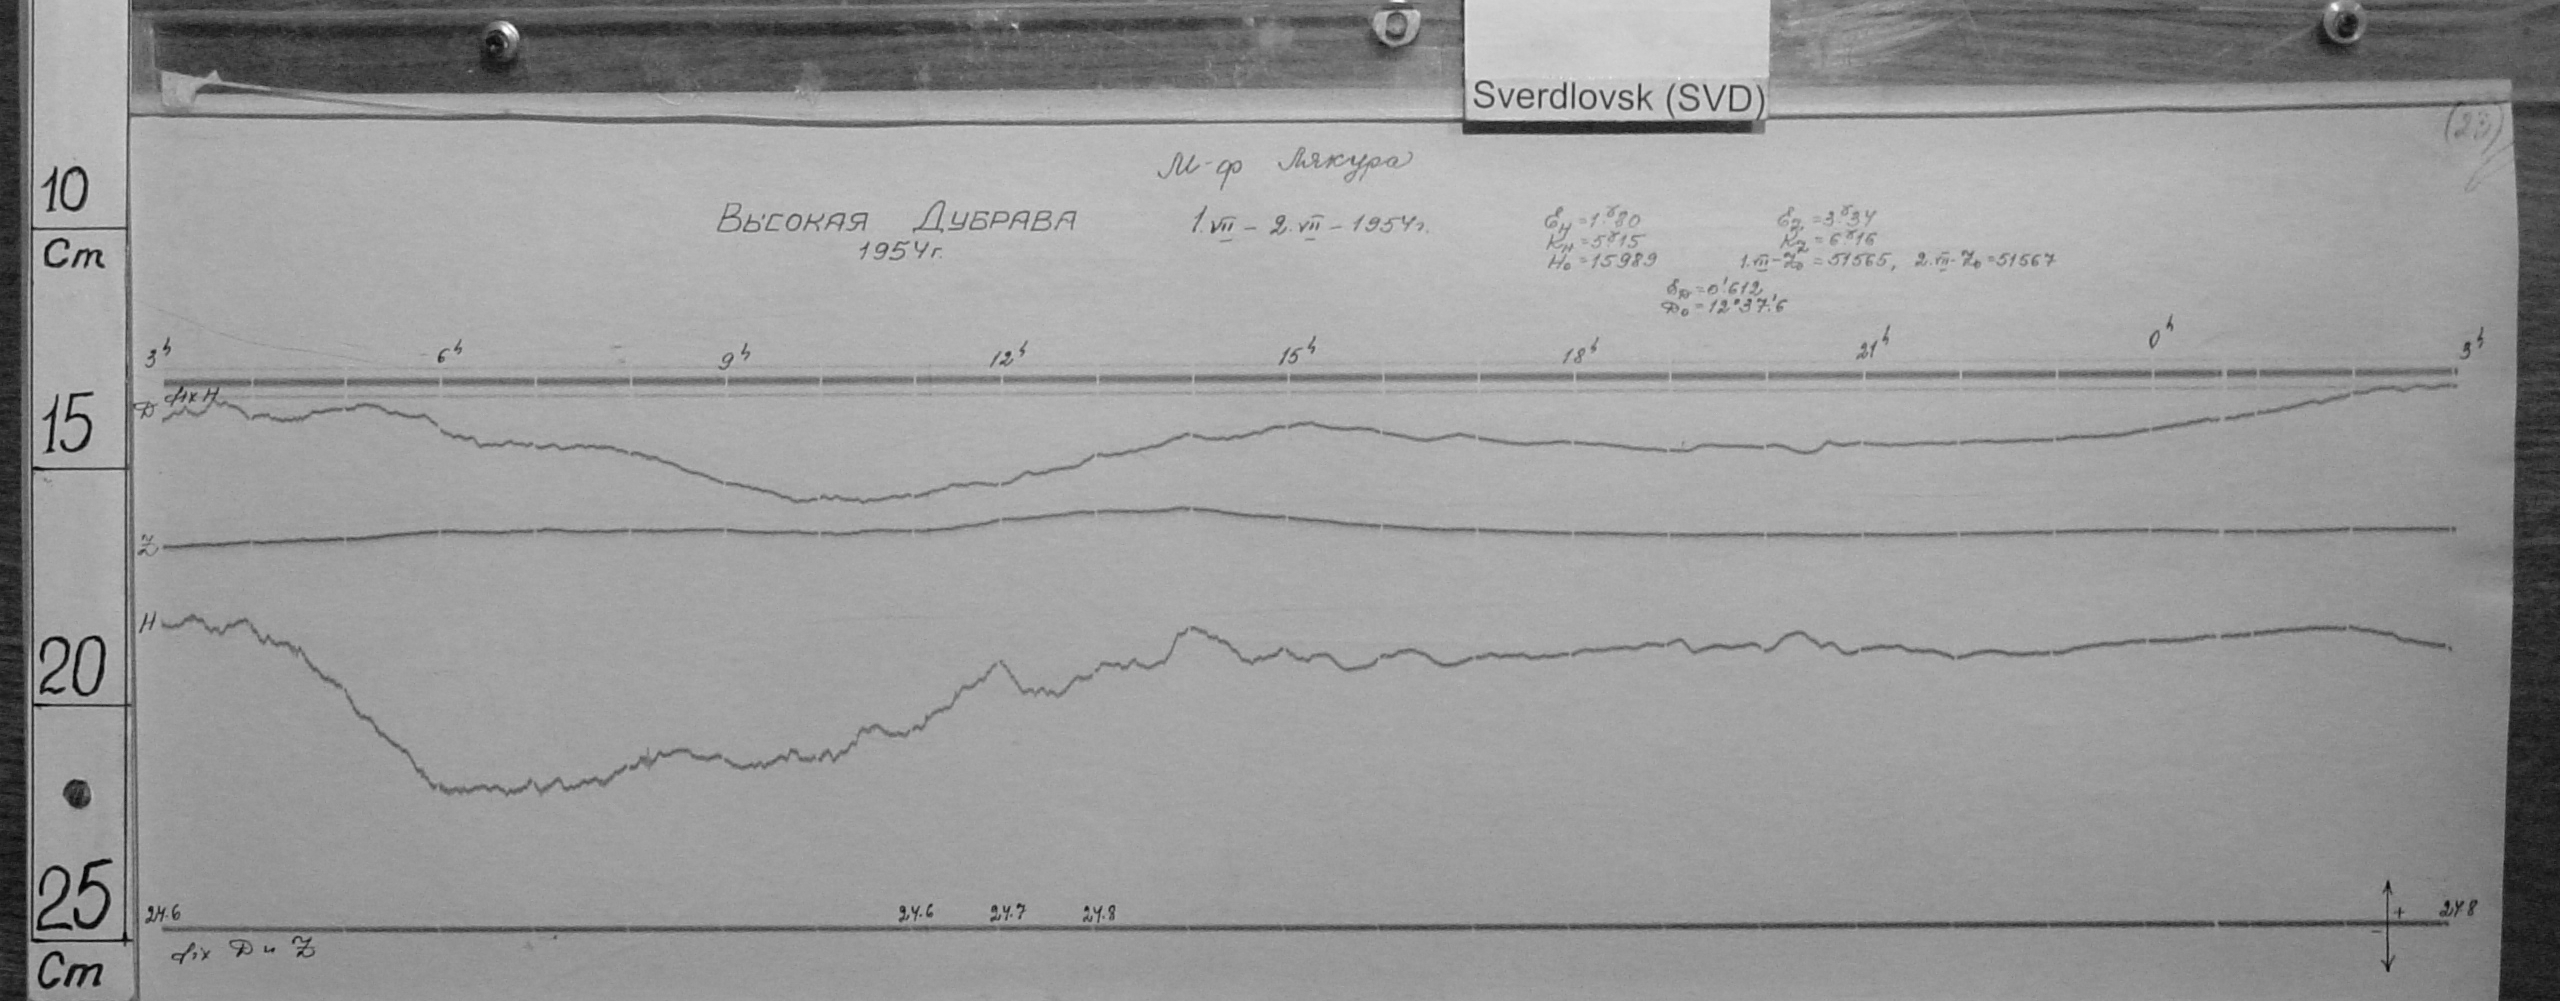 Sverdlovsk (SVD)
(23)
М-ф Мякура
10
Cm
ВЫСОКАЯ ДУБРАВА
1954г.
1.VII – 2.VII – 1954г.
Ɛн = 1.ᵞ80
Kн = 5ᵞ15
H₀ = 15989
Ɛz = 3.ᵞ34
Kz = 6ᵞ16
1.VII – Z₀ = 51565, 2.VII – Z₀ = 51567
ƐD = 0'.612
D₀ = 12°37'.6
3ʰ 6ʰ 9ʰ 12ʰ 15ʰ 18ʰ 21ʰ 0ʰ 3ʰ
fix H
D
15
Z
H
20
25
Cm
24.6 24.6 24.7 24.8 24.8
+
−
fix D и Z